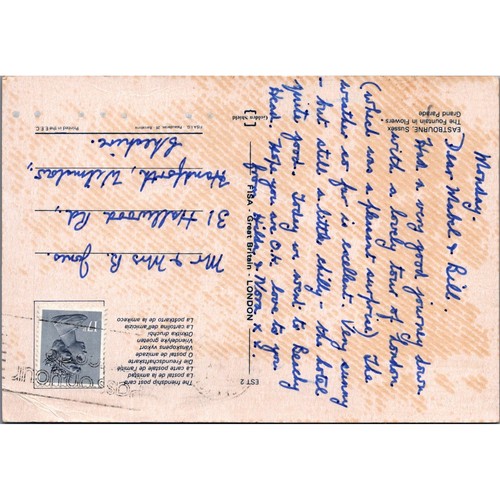 EASTBOURNE, Sussex
The Fountain in Flowers.
Grand Parade
Monday.
Dear Mabel & Bill.
Had a very good journey down
with a lovely tour of London
(which was a pleasant surprise) The
weather so far is excellent. Very sunny
- but still a little chilly - the hotel
quite good. Today we went to Beachy
Head. Hope you are O.K. love to you
from Hilda & Nora x x
EST 2
FISA - Great Britain - LONDON
Golden Shield
Printed in the E.E.C.
The friendship post card
La postal de la amistad
La carte postale de l'amitié
Die Freundschaftskarte
O postal de amizade
Vänskapens vykort
Vriendelyke groeten
La cartolina dell'amicizia
La postkarto de la amikeco
17P
Mr & Mrs B. Jones
31 Hallwood Rd,
Handforth, Wilmslow,
Cheshire.